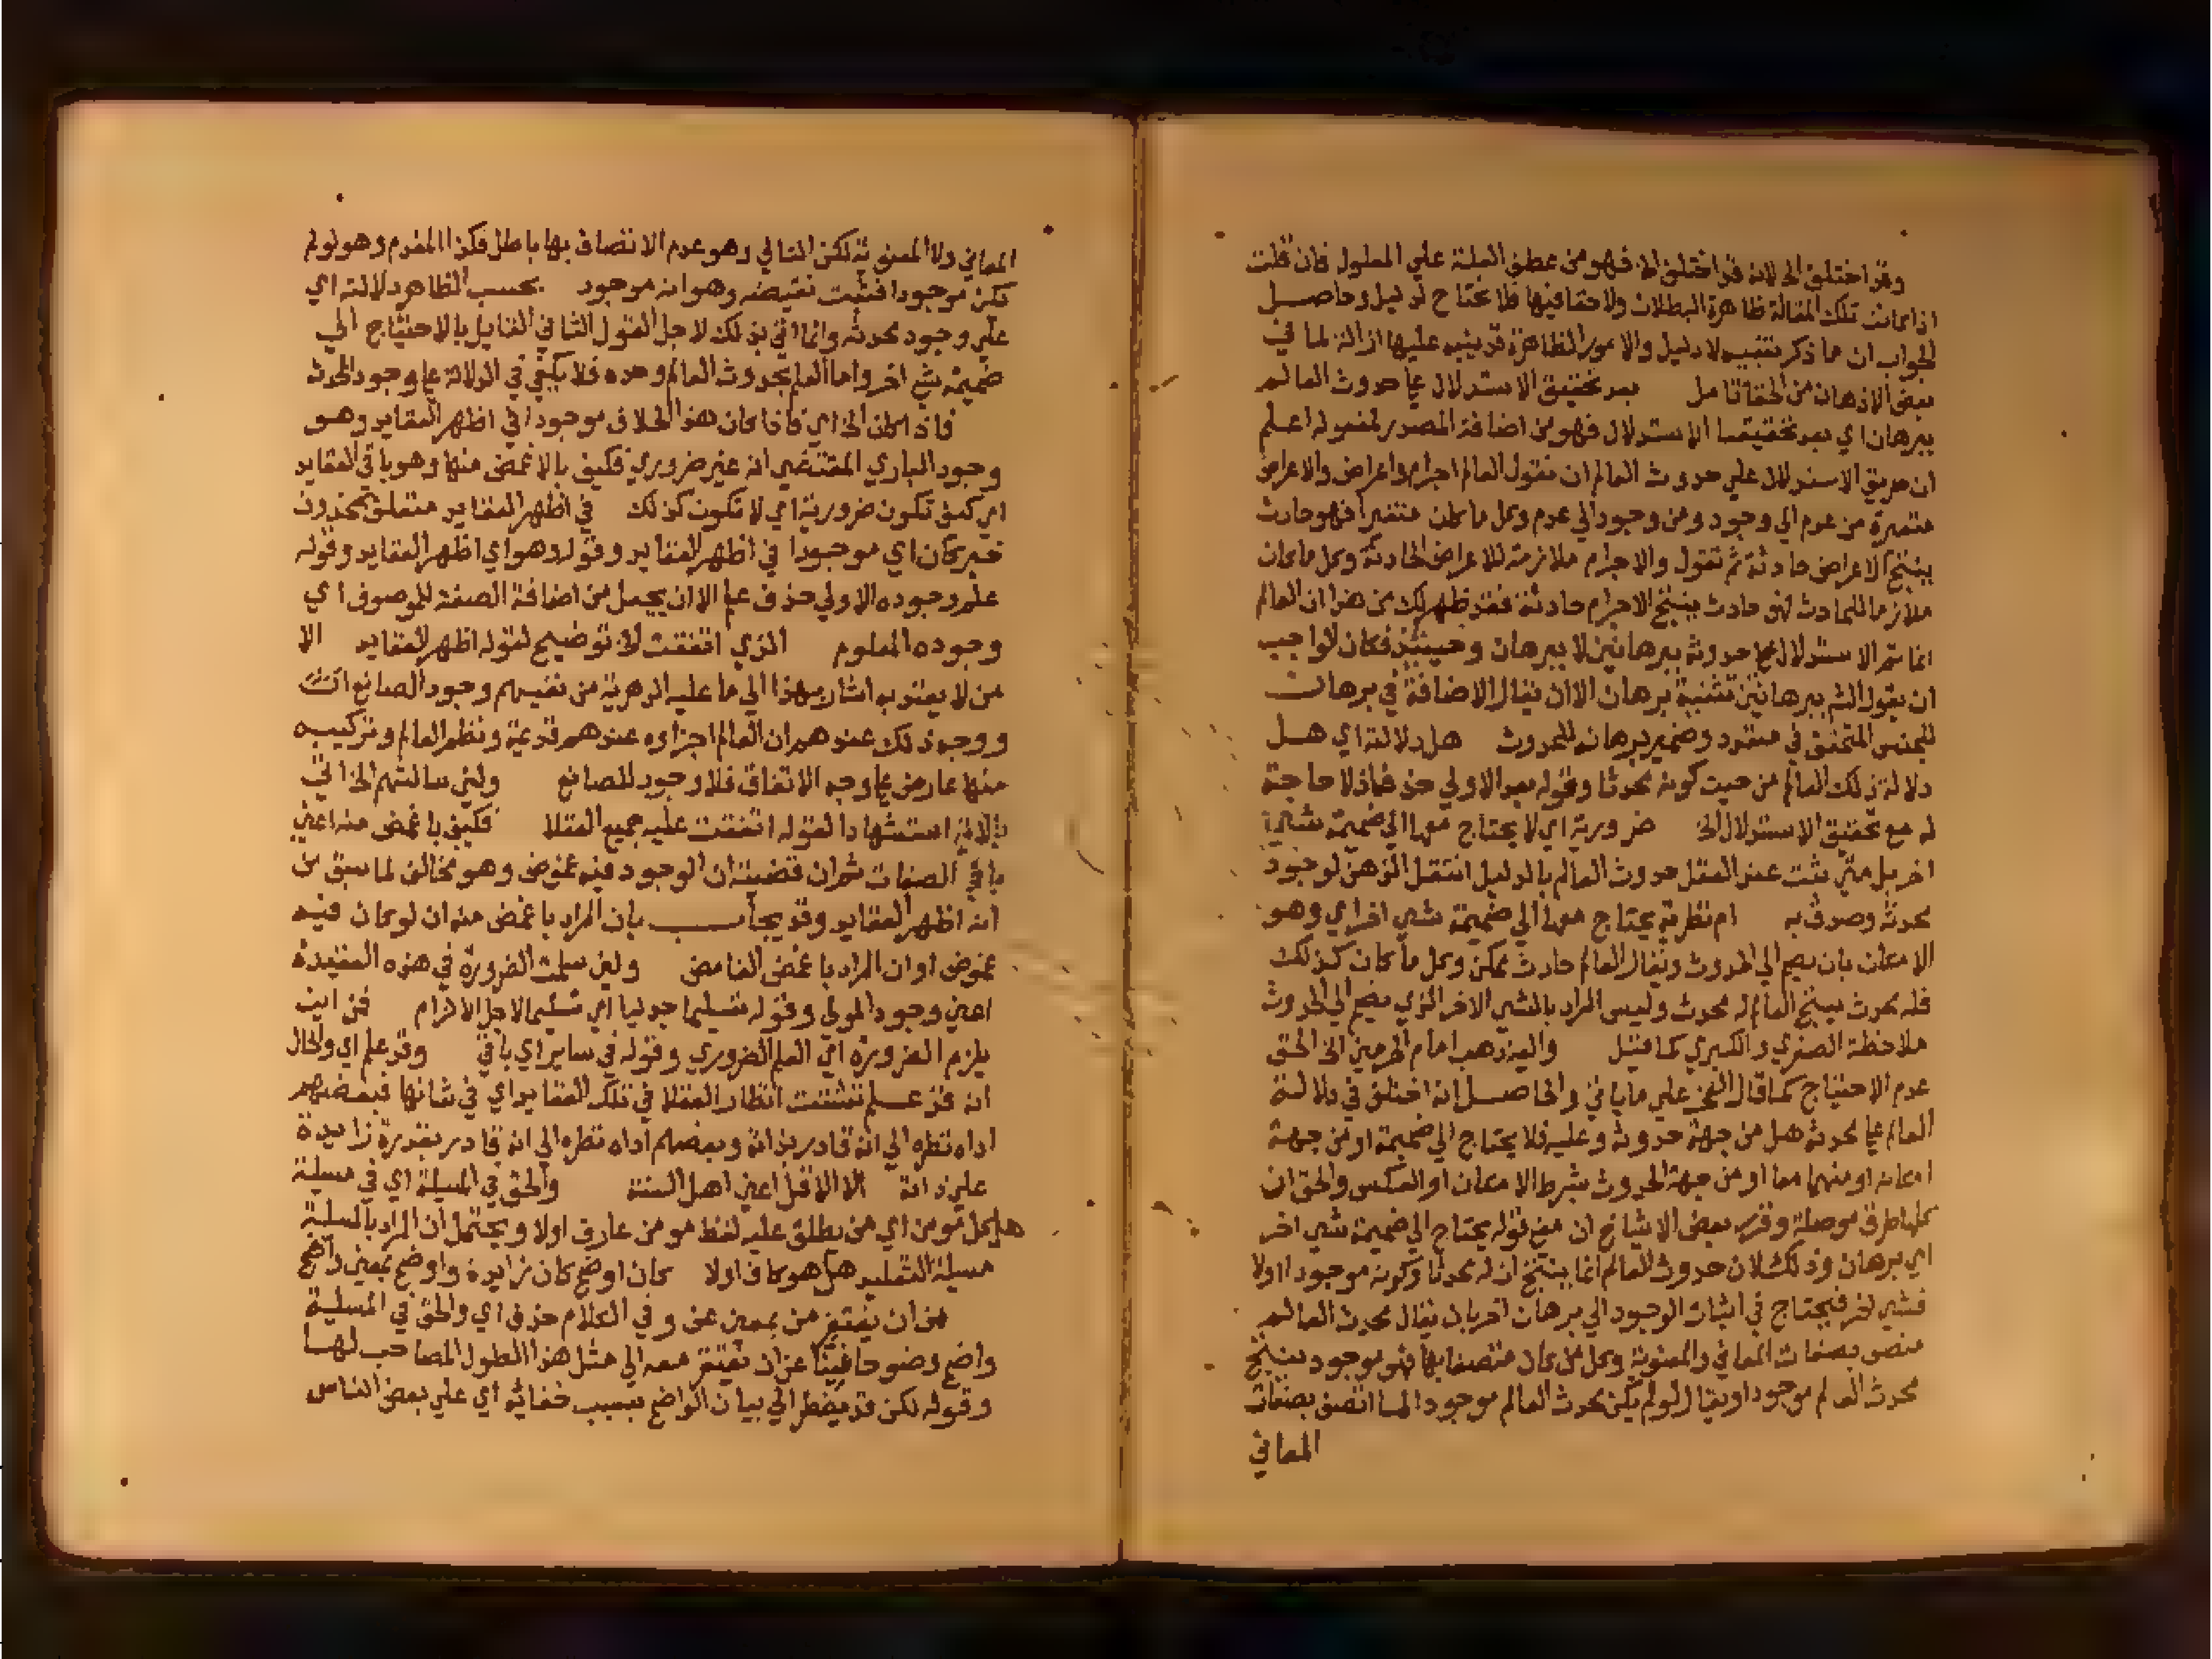 وقد اختلف الخ لانه قد اختلف الخ فهو من عطف العلة علي المعلول فان قلت
اذا كانت تلك المقالة ظاهرة البطلان ولا خفا فيها فلا تحتاج لدليل وحاصل
الجواب ان ما ذكر تنبيه لا دليل والامور الظاهرة قد ينبه عليها ازالة لما في
بعض الاذهان من الخفا تامل بعد تحقيق الاستدلال علي حدوث العالم
ببرهان اي بعد تحقيقنا الاستدلال فهو من اضافة المصدر لمفعوله اعلم
ان طريق الاستدلال علي حدوث العالم ان نقول العالم اجرام واعراض والاعراض
متغيرة من عدم الي وجود ومن وجود الي عدم وكل ما كان متغيرا فهو حادث
ينتج الاعراض حادثة ثم نقول والاجرام ملازمة للاعراض الحادثة وكل ما كان
ملازما للحادث فهو حادث ينتج الاجرام حادثة فقد ظهر لك من هذا ان العالم
انما تم الاستدلال علي حدوثه ببرهانين لا ببرهان وحينئذ فكان الواجب
ان يقول الشم ببرهانين تثنية برهان الا ان يقال الاضافة في برهان
للجنس المتحقق في متعدد وضمير برهانه للحدوث هل دلالته اي هل
دلالة ذلك العالم من حيث كونه محدثا وقوله بعد الاولي حذف هذا لا حاجة
له مع تحقيق الاستدلال الخ ضرورية اي لا يحتاج معها الي ضميمة شيء
اخر بل متي ثبت عند العقل حدوث العالم بالدليل انتقل الذهن لوجود
محدثه وصدق به ام نظرية يحتاج معها الي ضميمة شيء اخر اي وهو
الامكان بان يضم الي الحدوث ويقال العالم حادث ممكن وكل ما كان كذلك
فله محدث ينتج العالم له محدث وليس المراد بالشيء الاخر الذي يضم الي الحدوث
ملاحظة الصغري والكبري كما قيل واليه ذهب امام الحرمين الخ الحق
عدم الاحتياج كما قال الفخر علي ما ياتي والحاصل انه اختلف في دلالة
العالم علي محدثه هل من جهة حدوثه وعليه فلا يحتاج الي ضميمة او من جهة
امكانه او منهما معا او من جهة الحدوث بشرط الامكان او العكس والحق ان
كلها طرق موصلة وقرر بعض الاشياخ ان معني قوله يحتاج الي ضميمة شيء اخر
اي برهان وذلك لان حدوث العالم انما ينتج ان له محدثا وكونه موجودا اولا
فشيء اخر فيحتاج في اثبات الوجود الي برهان اخر بان يقال محدث العالم
متصف بصفات المعاني والمعنوية وكل من كان متصفا بها فهو موجود ينتج
محدث العالم موجود او يقال لو لم يكن محدث العالم موجودا لما اتصف بصفات
المعاني
المعاني ولا المعنوية لكن التالي وهو عدم الاتصاف بها باطل فكذا المقدم وهو لو لم
يكن موجودا فثبت نقيضه وهو انه موجود بحسب الظاهر دلالته اي
علي وجود محدثه وانما اتي بذلك لاجل القول الثاني القايل بالاحتياج الي
ضميمة شيء اخر واما العلم بحدوث العالم وحده فلا يكفي في الدلالة علي وجود المحدث
فاذا كان الخ اي فاذا كان هذا الخلاف موجودا في اظهر العقايد وهو
وجود الباري المقتضي انه غير ضروري فكيف بالاغمض منها وهو باقي العقايد
اي كيف تكون ضرورية اي لا تكون كذلك في اظهر العقايد متعلق بمحذوف
خبر كان اي موجودا في اظهر العقايد وقوله وهو اي اظهر العقايد وقوله
علم وجوده الاولي حذف علم الا ان يجعل من اضافة الصفة للموصوف اي
وجوده المعلوم الذي اتفقت الخ توضيح لقوله اظهر العقايد الا
من لا يعتد به اشار بهذا الي ما عليه الدهرية من نفيهم وجود الصانع
ووجه ذلك عندهم ان العالم اجزاوه عندهم قديمة ونظم العالم وتركيبه
منها عارض علي وجه الاتفاق فلا وجود للصانع ولين سالتهم الخ اتي
بالاية استشهادا لقوله اتفقت عليه جميع العقلا فكيف باغمض منه اعني
باقي الصفات ثم ان قضيته ان الوجود فيه غموض وهو مخالف لما سبق من
انه اظهر العقايد وقد يجاب بان المراد باغمض منه ان لو كان فيه
غموض او ان المراد باغمض الغامض ولين سلمت الضرورة في هذه العقيدة
اعني وجود المولي وقوله تسليما جدليا اي تسليما لاجل الالزام فمن اين
يلزم الضرورة اي العلم الضروري وقوله في ساير اي باقي وقد علم اي والحال
انه قد علم تشتت انظار العقلا في تلك العقايد اي في شانها فبعضهم
اداه نظره الي انه قادر بذاته وبعضهم اداه نظره الي انه قادر بقدرة زايدة
علي ذاته الا الاقل اعني اهل السنة والحق في المسيلة اي في مسيلة
هل كل مومن اي من يطلق عليه لفظ مومن عارف اولا ويحتمل ان المراد بالمسيلة
مسيلة التقليد هل هو كاف اولا كان اوضح كان زايدة واوضح بمعني واضح
من ان يفتقر من بمعني عن وفي الكلام حذف اي والحق في المسيلة
واضح وضوحا غنيا عن ان يفتقر معه الي مثل هذا المطول المصاحب لها
وقوله لكن قد يضطر الي بيان الواضح بسبب خفايه اي علي بعض الناس